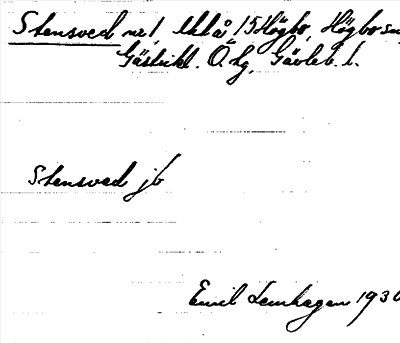 Stensved nr 1, Utlå 15 Högbo, Högbo sn,
Gästrikl. Ö. hg, Gävleb. l.
Stensved jb
Emil Lennhagen 1930